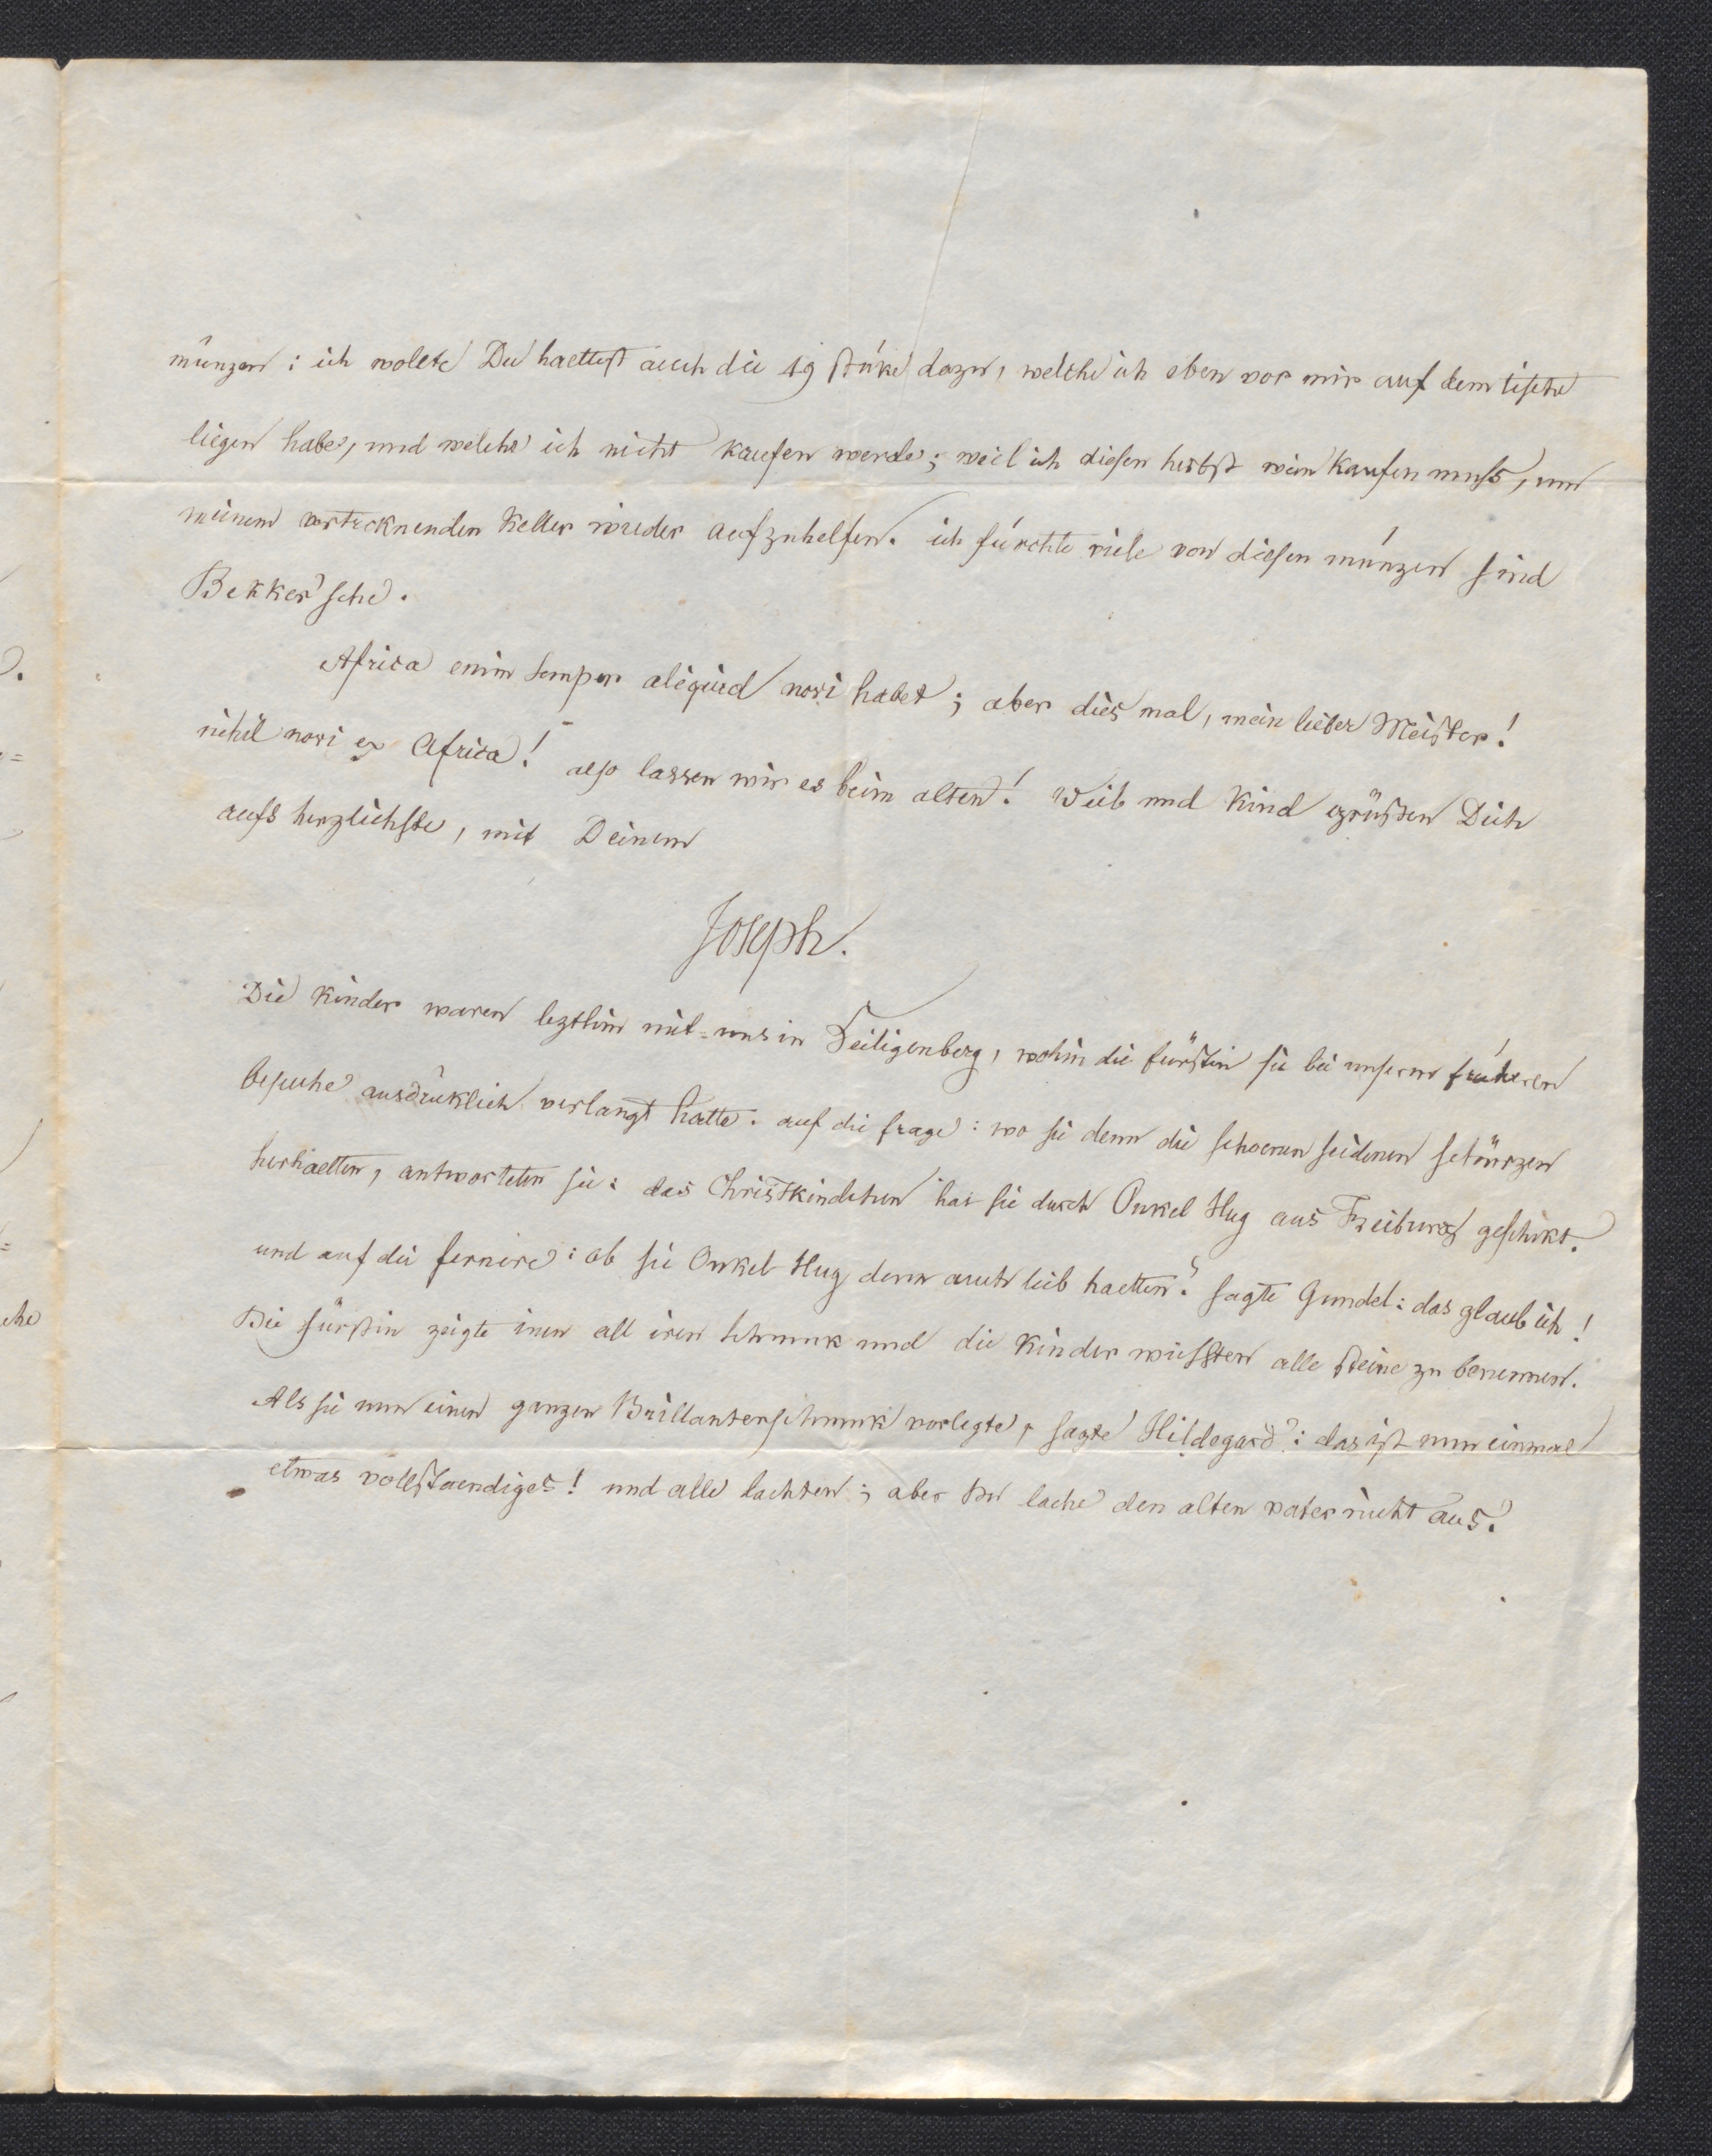 münzen: ich wollte Du haettest auch die 19 stüke dazu, welche ich eben vor mir auf dem tische
liegen habe, und welche ich nicht kaufen werde; weil ich diesen herbst wein kaufen muss, um
meinem vertroknenden Keller wieder aufzuhelfen. ich fürchte viele von diesen münzen sind
Bekker'sche.
Africa enim semper aliquid novi habet; aber dies mal, mein lieber Meister!
nihil novi ex Africa! also lassen wir es beim alten! Weib und Kind grüssen Dich
aufs herzlichste, mit Deinem
Joseph.
Die Kinder waren lezthin mit uns in Heiligenberg, wohin die fürstin sie bei unserm früheren
besuche ausdrüklich verlangt hatte. auf die frage: wo sie denn die schoenen seidenen schürzen
herhaetten, antworteten sie: das Christkindchen hat sie durch Onkel Hug aus Freiburg geschikt.
und auf die fernere: ob sie Onkel Hug denn auch lieb haetten? sagte Gundel: das glaub ich!
Die fürstin zeigte inen all iren schmuk und die Kinder wussten alle steine zu benennen.
Als sie nun einen ganzen Brillantenschmuk vorlegte, sagte Hildegard: das ist nun einmal
etwas vollstaendiges! und alle lachten; aber Du lache den alten vater nicht aus!